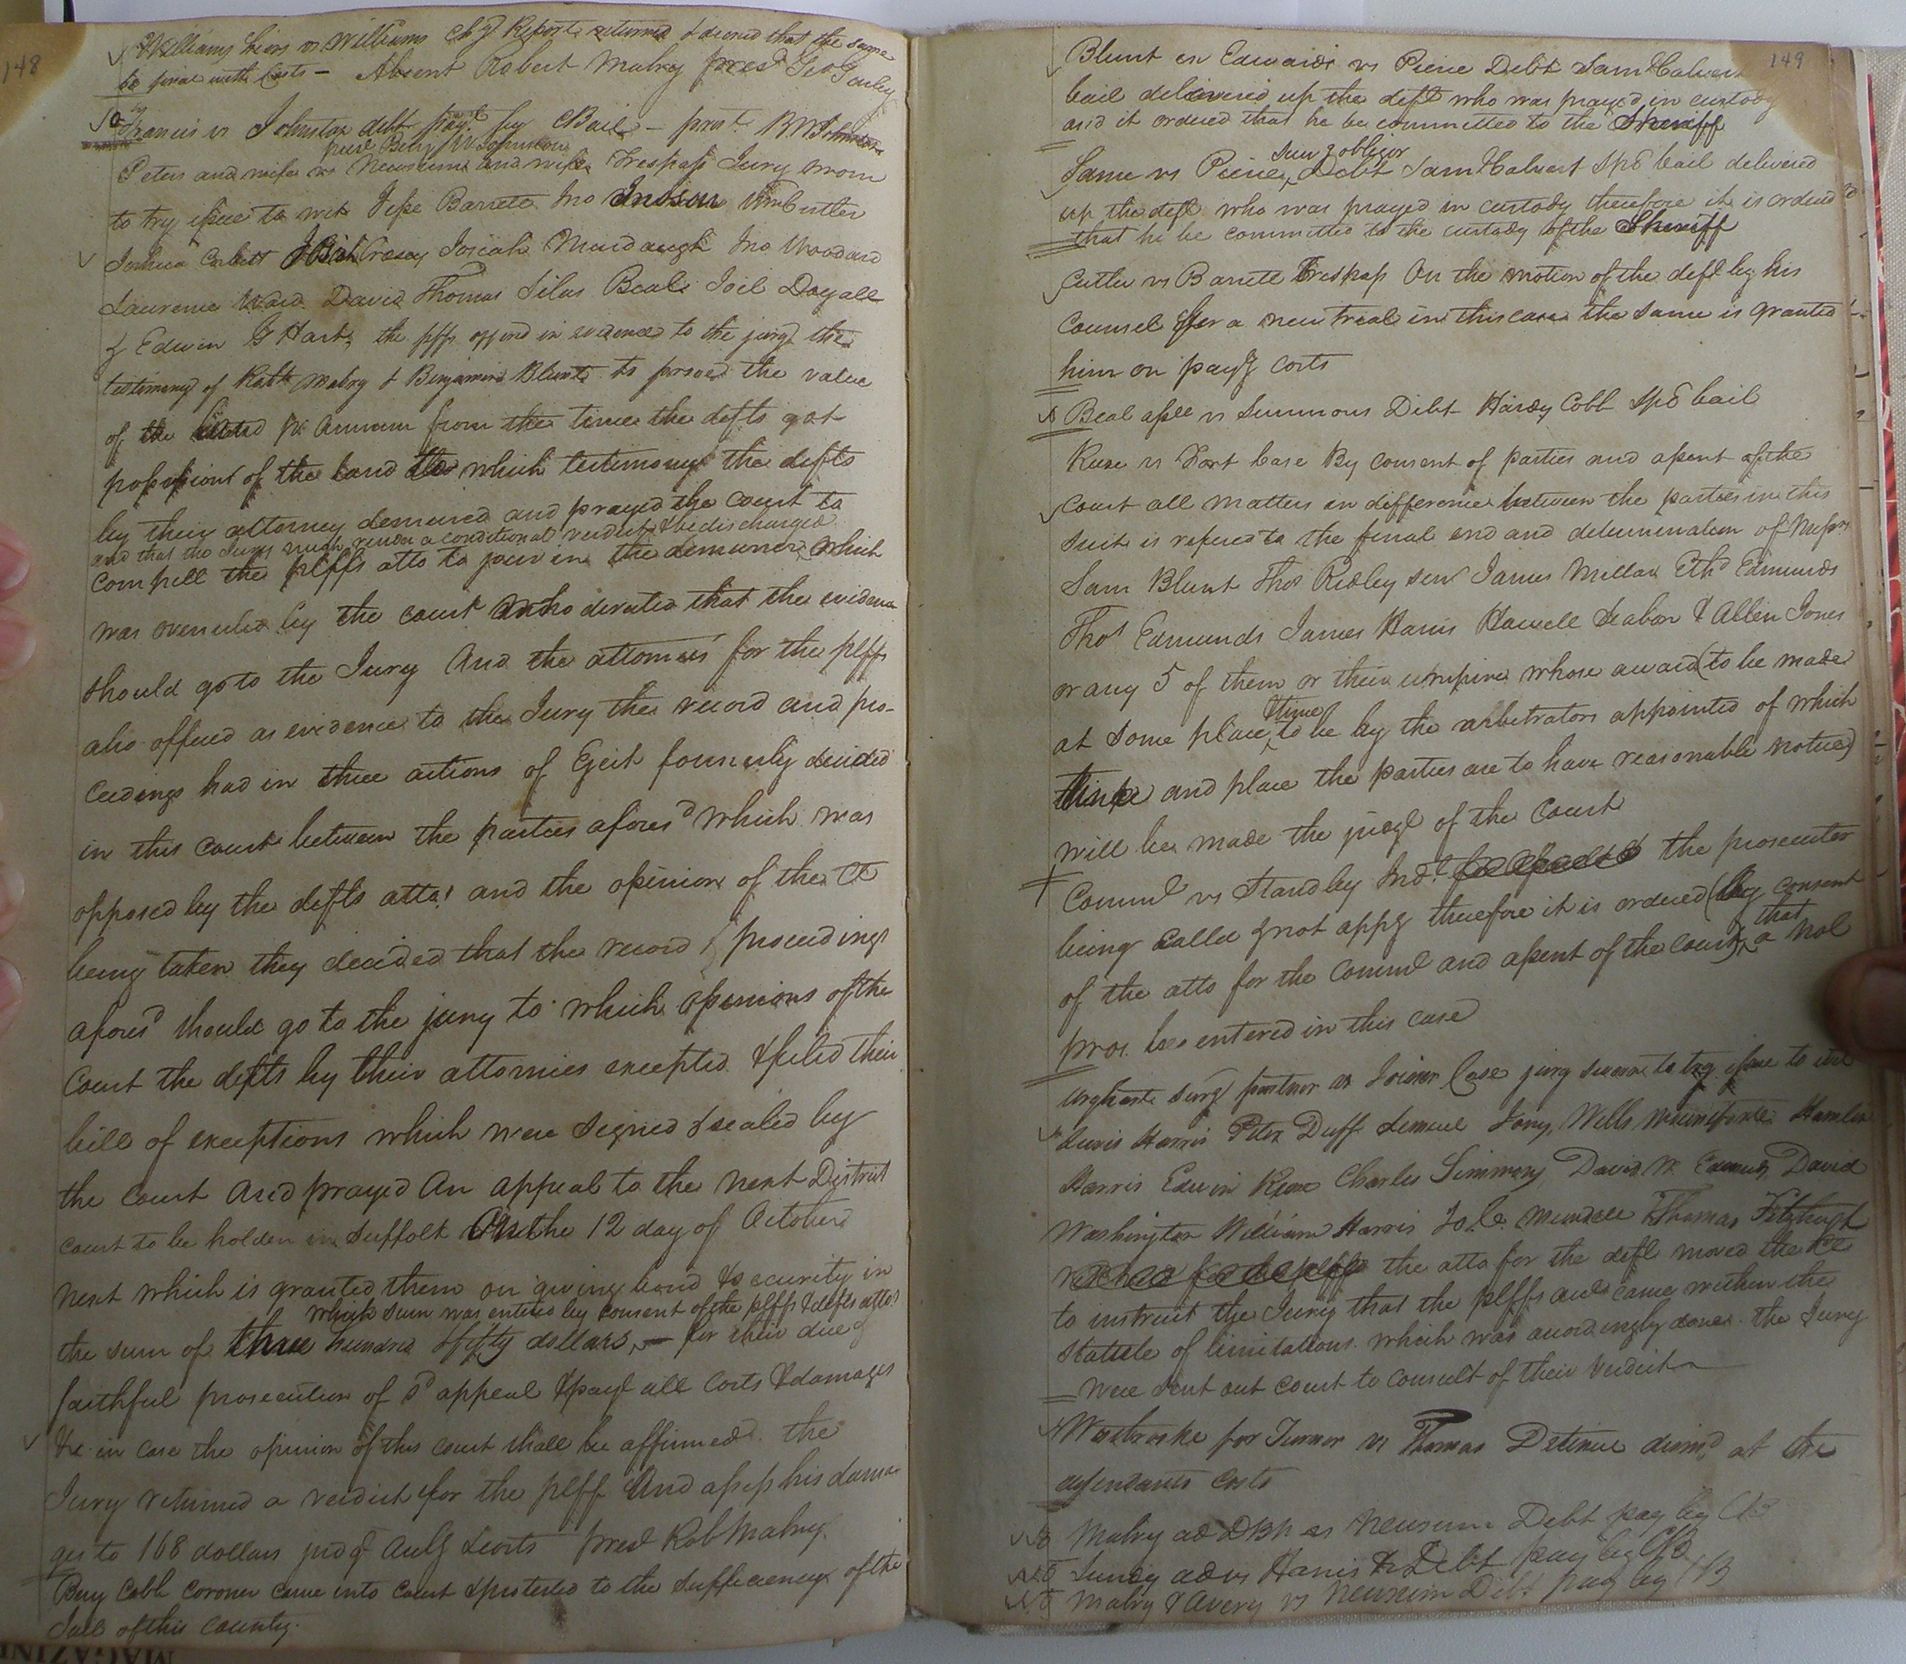 148
Williams heirs vs Williams Chy Report returned & decreed that the same
be final with Costs - Absent Robert Mabry pres.d Geo Gurley
Francis vs Johnston debt pay.t by Bail - prest. BW Johnston
pres.d Benj W Johnston
Peters and wife vs Newsums and wife Trespass Jury sworn
to try issue to wit Jesse Barrett Jno Wm Cutler
Joshua Corbett Crasey Josiah Murdaugh Jno Woodard
Laurence Ward David Thomas Silas Beal Joil Dayall
& Edwin G Hart, the plffs offered in evidence to the jury the
testimony of Robt Mabry & Benjamin Blunt to prove the value
of the land pr. Annum from the time the defts got
possession of the land which testimony the defts
by their attorney demured and prayed the court to
and that the Jury might render a conditional verdict & be discharged
compell the plffs atto to join in the demurrer, which
was overruled by the court who derected that the evidence
should go to the Jury And the attornies for the plffs
also offered as evidence to the Jury the record and pro-
ceedings had in three actions of Eject formerly decided
in this court between the parties afores.d which was
opposed by the defts atto.s and the opinion of the Ct
being taken they decided that the record & proceedings
afores.d should go to the jury to which opinions of the
Court the defts by their attornies excepted & filed their
bill of exceptions which were signed & sealed by
the court And prayed An appeal to the next District
court to be holden in Suffolk On the 12 day of October
next which is granted them on giving bond & security in
which sum was entered by consent of the plffs & defts atto.s
the sum of three hundred & fifty dollars, - for their due &
faithful prosecution of s.d appeal & pay.g all Costs & damages
&c in case the opinion of this court shall be affirmed. the
Jury returned a verdict for the plff And assess his dama
ges to 168 dollars judg.t Aulg & costs pres.d Rob Mabry
Benj Cobb coroner came into court & protested to the sufficiency of the
Jail of this County.
149
Blunt ex Edwards vs Pierce Debt Sam Calvert
bail delivered up the deft who was prayed in custody
and it ordered that he be committed to the Sheriff
Same vs Pierce, surv.g obligor Debt Sam Calvert Spd bail delivered
up the deft who was prayed in custody therefore it is ordered
that he be committed to the custody of the Sheriff
Cutler vs Barrett Trespass On the motion of the deft by his
Counsel for a new trial in this case the same is granted
him on pay.g costs
Beal assee vs Simmons Debt Hardy Cobb Spd bail
Ruse vs Fort Case By consent of parties and assent of the
Court all matters in difference between the parties in this
suit is refered to the final end and determination of Messrs
Sam Blunt Thos Ridley sen.r James Millar Ethd Edmunds
Thos Edmunds James Harris Howell Seabon & Allen Jones
or any 5 of them or their umpire whose award (to be made
at some place & time to be by the arbitrators appointed of which
time and place the parties are to have reasonable notice)
will be made the judgt of the Court
Commd vs Standley Ind.t the prosecuter
being called & not app.g therefore it is ordered (by consent
of the atto for the Commd and assent of the court) that a nol
pros. be entered in this case
Urquhart surv.g partner vs Joiner Case jury sworn to try issue to wit
Lewis Harris Peter Duff Lemuel Long, Wells Hamlin
Harris Edwin Charles Simmons, David W Edmunds, David
Washington William Harris Jo. C. Thomas Fitzhugh
the atto for the deft moved the Ct
to instruct the Jury that the plffs case came within the
Statute of limitations which was accordingly done. the Jury
were sent out court to consult of their Verdict
Westbrooke for Turner vs Thomas Detinue dism.d at the
defendants Costs
Mabry ad vs Newsum Debt pay by CB
Lundy ad vs Harris Debt pay by CB
Mabry & Avery vs Newsum Debt pay by CB
MAGAZINE